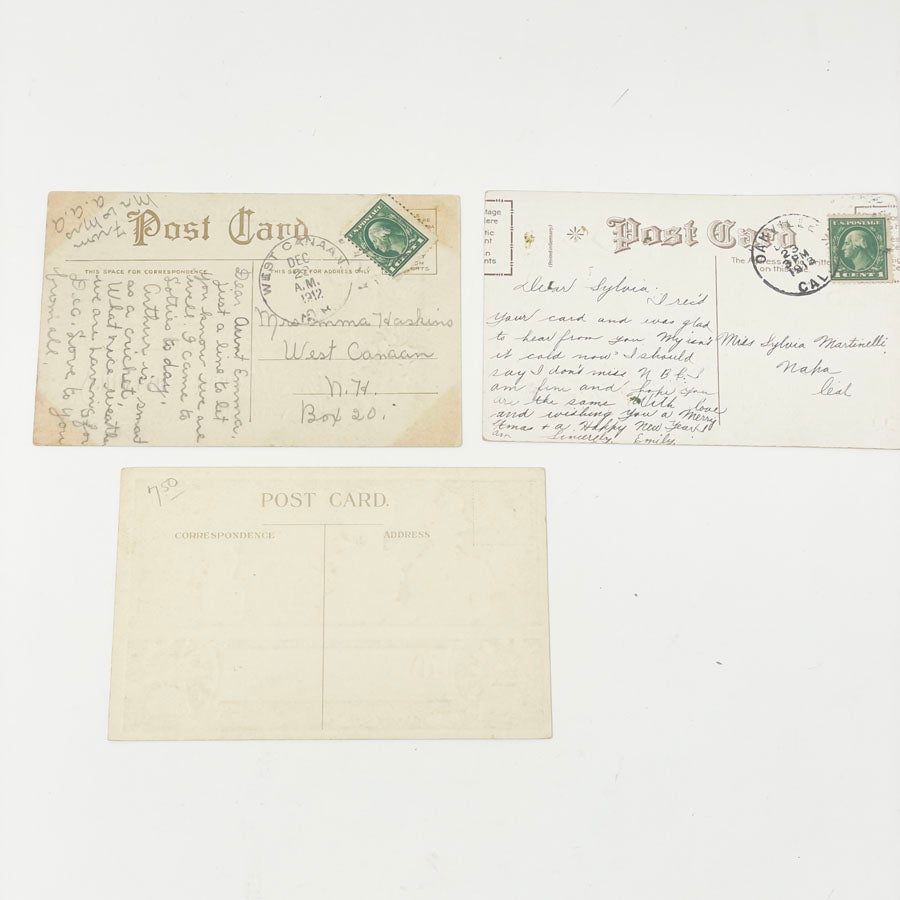 Post Card
THIS SPACE FOR CORRESPONDENCE
THIS SPACE FOR ADDRESS ONLY
From
Mr & Mrs
a.a.a
WEST CANAAN
DEC
A.M.
1912
N.H.
U.S. POSTAGE
1 CENT 1
Dear Aunt Emma,
Just a line to let
you know we are
well. I came to
Lottie's to day.
Arthur is smart
as a cricket.
What nice weather
we are having for
Dec. Love to you
from all.
Mrs Emma Haskins
West Canaan
N.H.
Box 20.
Post Card
OAKVILLE
23
3 PM
CAL
U.S. POSTAGE
1 CENT 1
Dear Sylvia.
I rec'd
your card and was glad
to hear from you. My isn't
it cold now? I should
say I don't miss N.B.P. I
am fine and hope you
are the same. With love
and wishing you a Merry
Xmas + a Happy New Year I
am Sincerely Emily.
Miss Sylvia Martinelli
Napa
Cal
7 50
POST CARD.
CORRESPONDENCE
ADDRESS